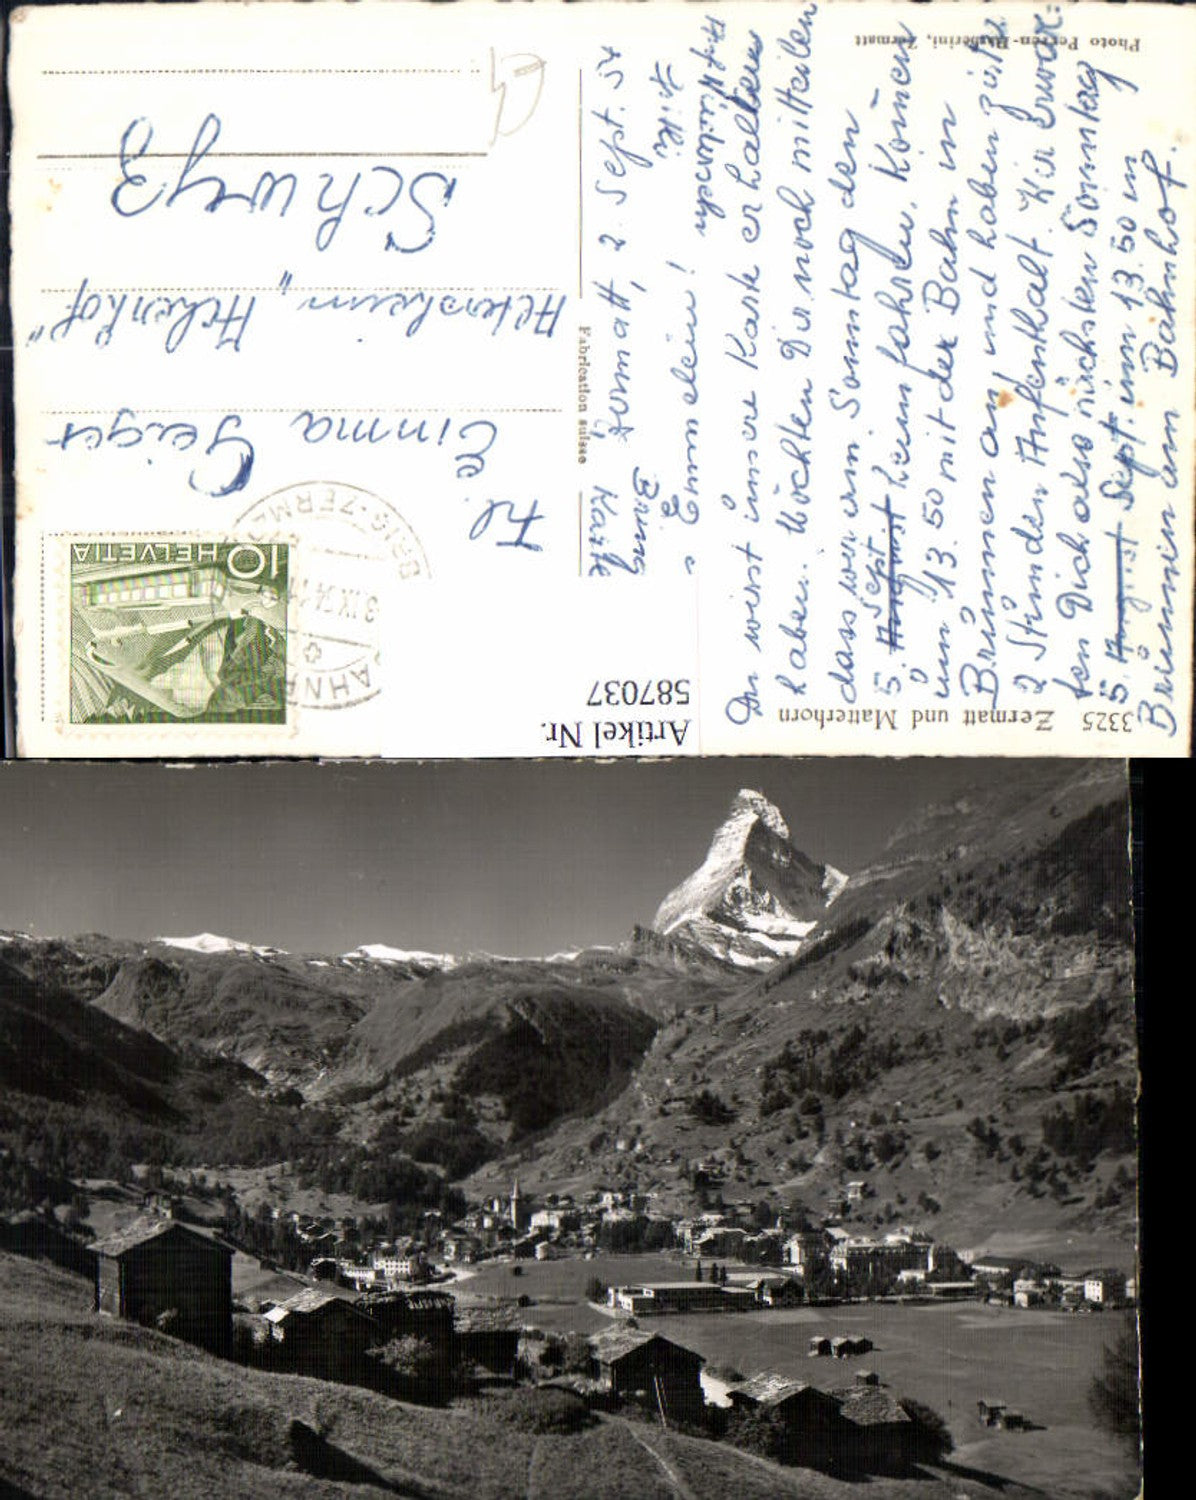 3325 Zermatt und Matterhorn
Photo Perren-Barberini, Zermatt
Fabrication suisse
Artikel Nr.
587037
HELVETIA 10
BRIG-ZERMATT
BAHNP
3.IX.54
Frl.
Emma Geiger
Altersheim „Acherhof"
Schwyz
Zermatt, 2. Sept. 54
Emmelein!
Du wirst unsere Karte erhalten
haben. Möchten Dir noch mitteilen
dass wir am Sonntag den
5. August Sept. heim fahren. Kom̄en
um 13.50 mit der Bahn in
Brunnen an und haben zirka
2 Stunden Aufenthalt. Wir erwar=
ten Dich also nächsten Sonntag
5. August Sept. um 13.50 in
Brunnen am Bahnhof.
Auf Wiedersehen